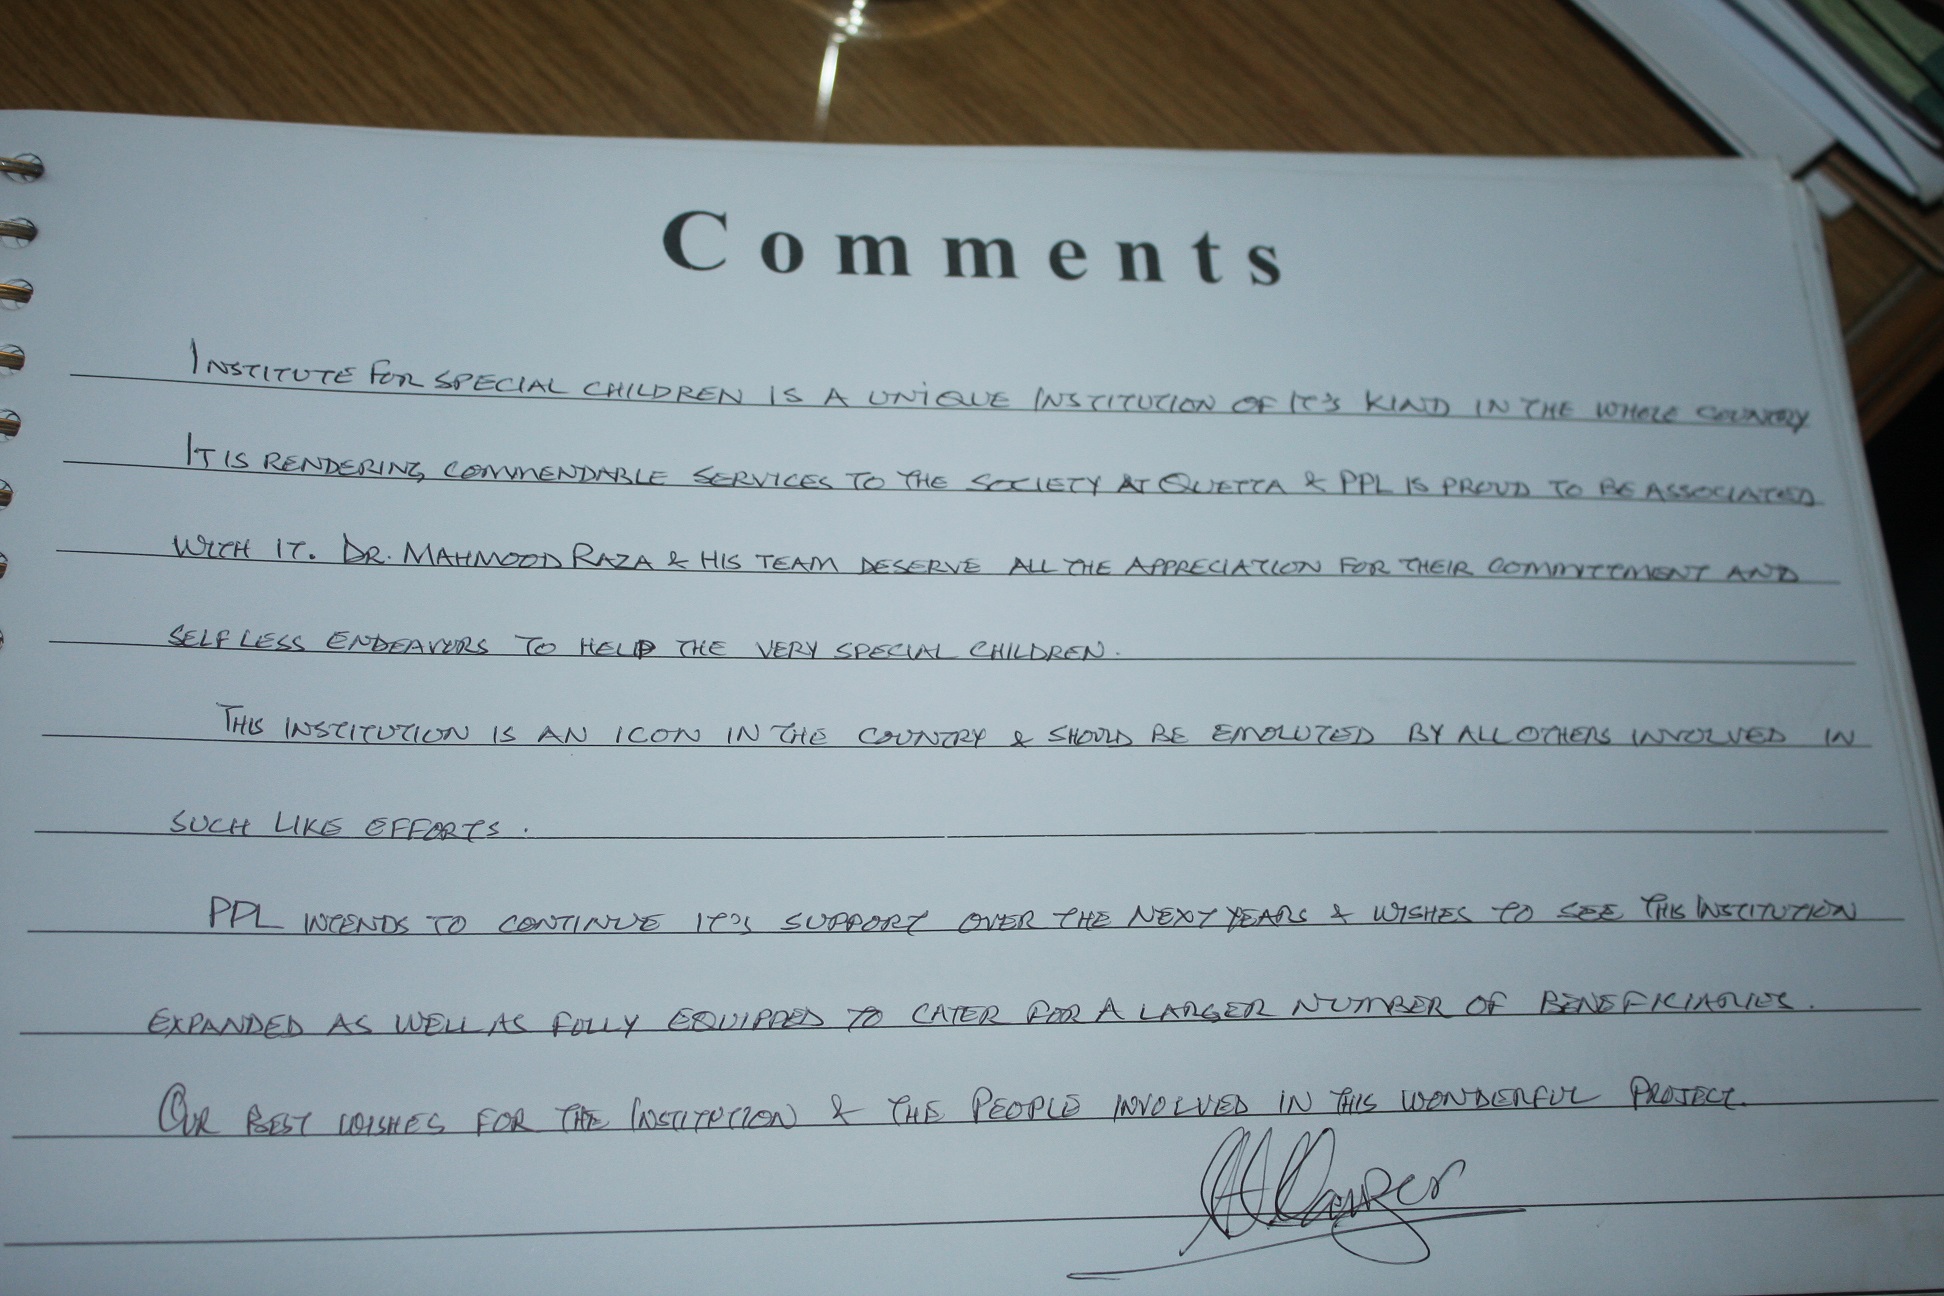 Comments
INSTITUTE FOR SPECIAL CHILDREN IS A UNIQUE INSTITUTION OF IT'S KIND IN THE WHOLE COUNTRY
IT IS RENDERING COMMENDABLE SERVICES TO THE SOCIETY AT QUETTA & PPL IS PROUD TO BE ASSOCIATED
WITH IT. DR. MAHMOOD RAZA & HIS TEAM DESERVE ALL THE APPRECIATION FOR THEIR COMMITTMENT AND
SELFLESS ENDEAVORS TO HELP THE VERY SPECIAL CHILDREN.
THIS INSTITUTION IS AN ICON IN THE COUNTRY & SHOULD BE EMOLUTED BY ALL OTHERS INVOLVED IN
SUCH LIKE EFFORTS.
PPL INTENDS TO CONTINUE IT'S SUPPORT OVER THE NEXT YEARS & WISHES TO SEE THIS INSTITUTION
EXPANDED AS WELL AS FULLY EQUIPPED TO CATER FOR A LARGER NUMBER OF BENEFICIARIES.
OUR BEST WISHES FOR THE INSTITUTION & THE PEOPLE INVOLVED IN THIS WONDERFUL PROJECT.